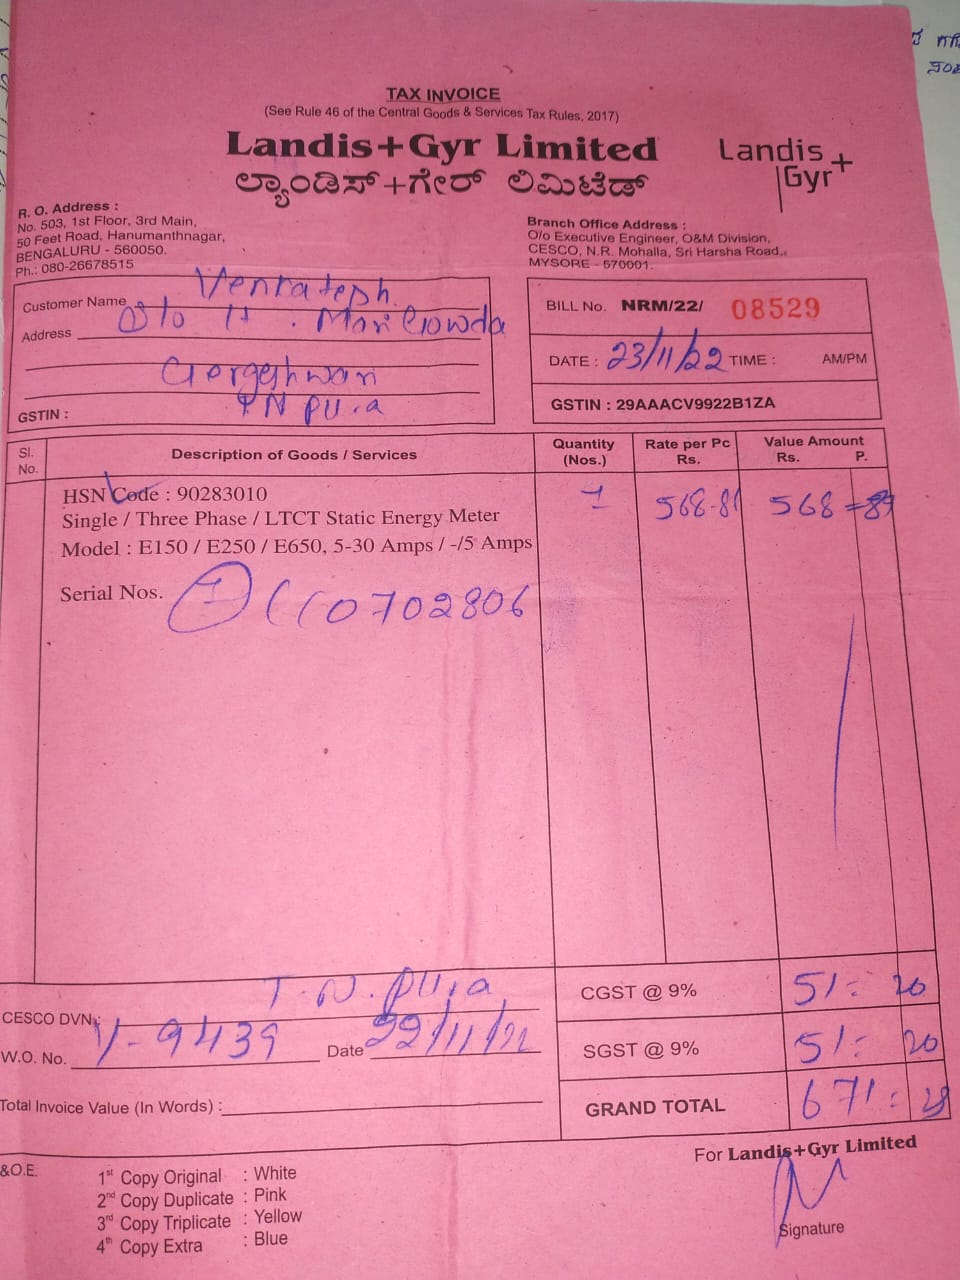 TAX INVOICE
(See Rule 46 of the Central Goods & Services Tax Rules, 2017)
Landis+Gyr Limited
ಲ್ಯಾಂಡಿಸ್+ಗೇರ್ ಲಿಮಿಟೆಡ್
Landis
Gyr+
R. O. Address :
No. 503, 1st Floor, 3rd Main,
50 Feet Road, Hanumanthnagar,
BENGALURU - 560050.
Ph.: 080-26678515
Branch Office Address :
O/o Executive Engineer, O&M Division,
CESCO, N.R. Mohalla, Sri Harsha Road,
MYSORE - 570001.
Customer Name Venkatesh
Address S/o H. Mari Gowda
Gergeshwari
T N PU.a
GSTIN :
BILL No. NRM/22/ 08529
DATE : 23/11/22 TIME : AM/PM
GSTIN : 29AAACV9922B1ZA
Sl. No. Description of Goods / Services Quantity (Nos.) Rate per Pc Rs. Value Amount Rs. P.
HSN Code : 90283010 1 568-81 568
Single / Three Phase / LTCT Static Energy Meter
Model : E150 / E250 / E650, 5-30 Amps / -/5 Amps
Serial Nos. 1 110702806
CGST @ 9% 51 = 20
SGST @ 9% 51 = 20
GRAND TOTAL 671 =
CESCO DVN : T.N.PU.a
W.O. No. V-9439 Date 22/11/22
Total Invoice Value (In Words) :
&O.E.
1st Copy Original : White
2nd Copy Duplicate : Pink
3rd Copy Triplicate : Yellow
4th Copy Extra : Blue
For Landis+Gyr Limited
Signature